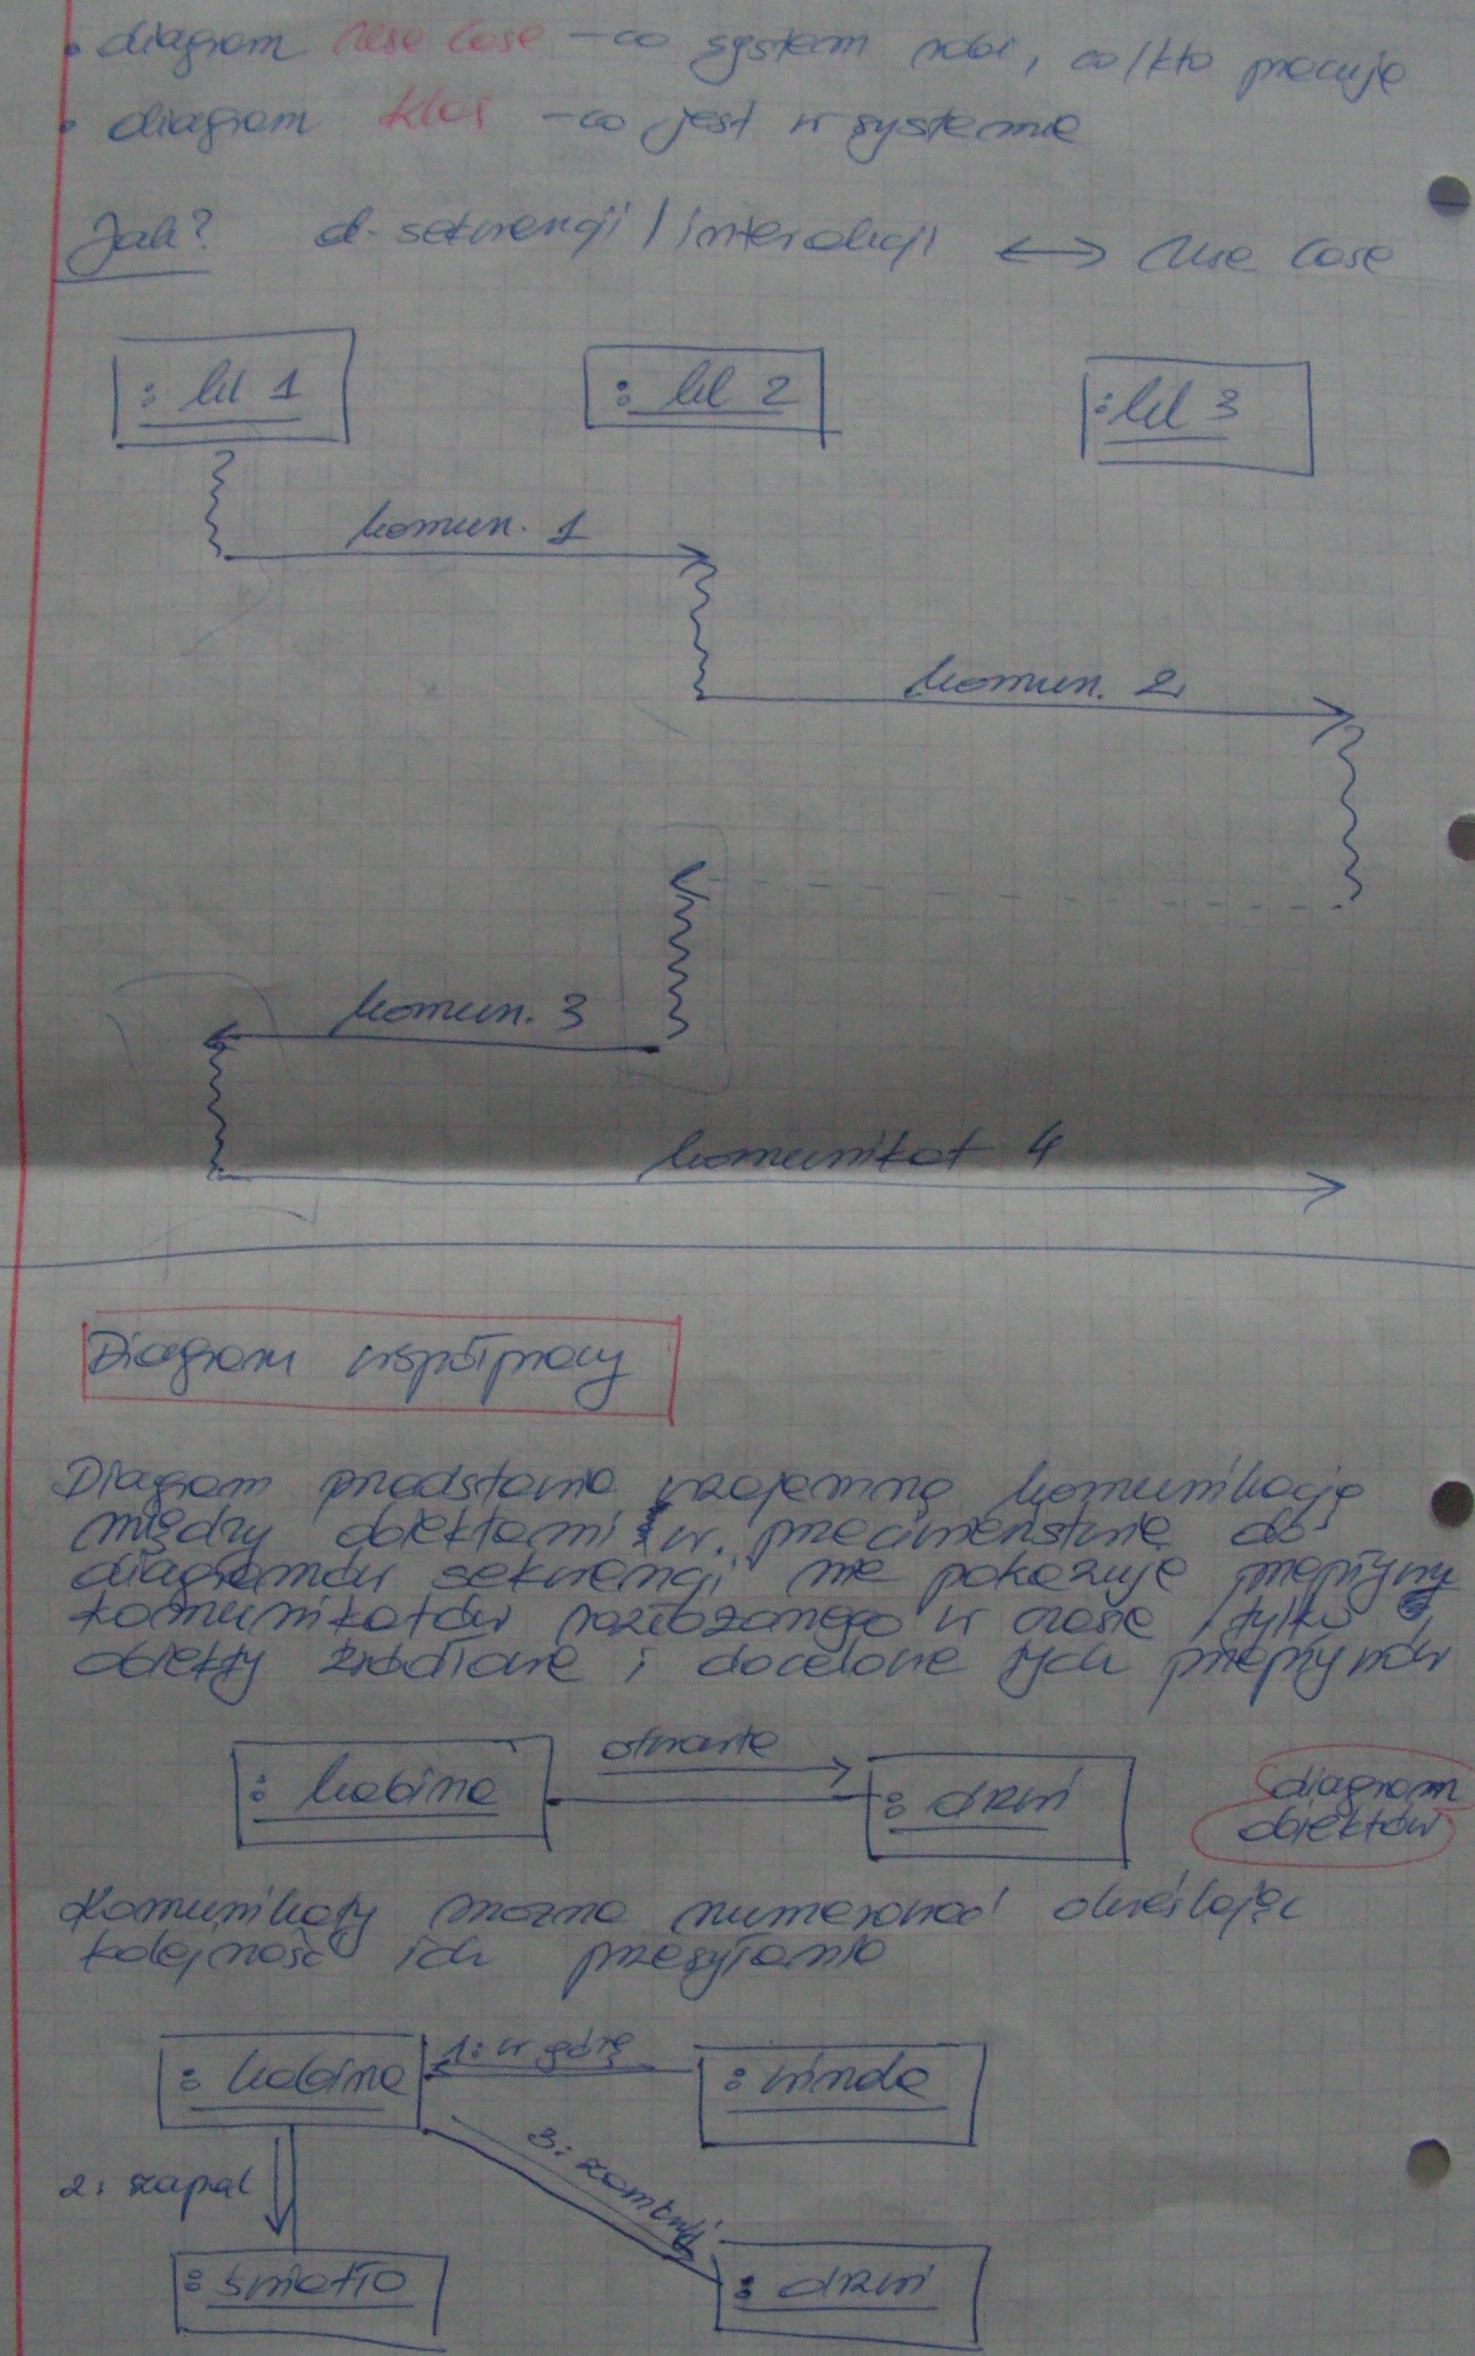 • diagram use case - co system robi, co/kto pracuje
• diagram klas - co jest w systemie
Jak? d. sekwencji / interakcji ↔ use case
: kl 1
: kl 2
: kl 3
komun. 1
komun. 2
komun. 3
komunikat 4
Diagram współpracy
Diagram przedstawia wzajemną komunikację
między obiektami w. przeciwieństwie do
diagramów sekwencji nie pokazuje przepływu
komunikatów w czasie, tylko
obiekty źródłowe i docelowe tych przepływów
otwarte
: kabina
: drzwi
diagram
obiektów
Komunikaty można numerować określając
kolejność ich przesyłania
: kabina
1: w górę
: winda
2: zapal
3: zamknij
: światło
: drzwi